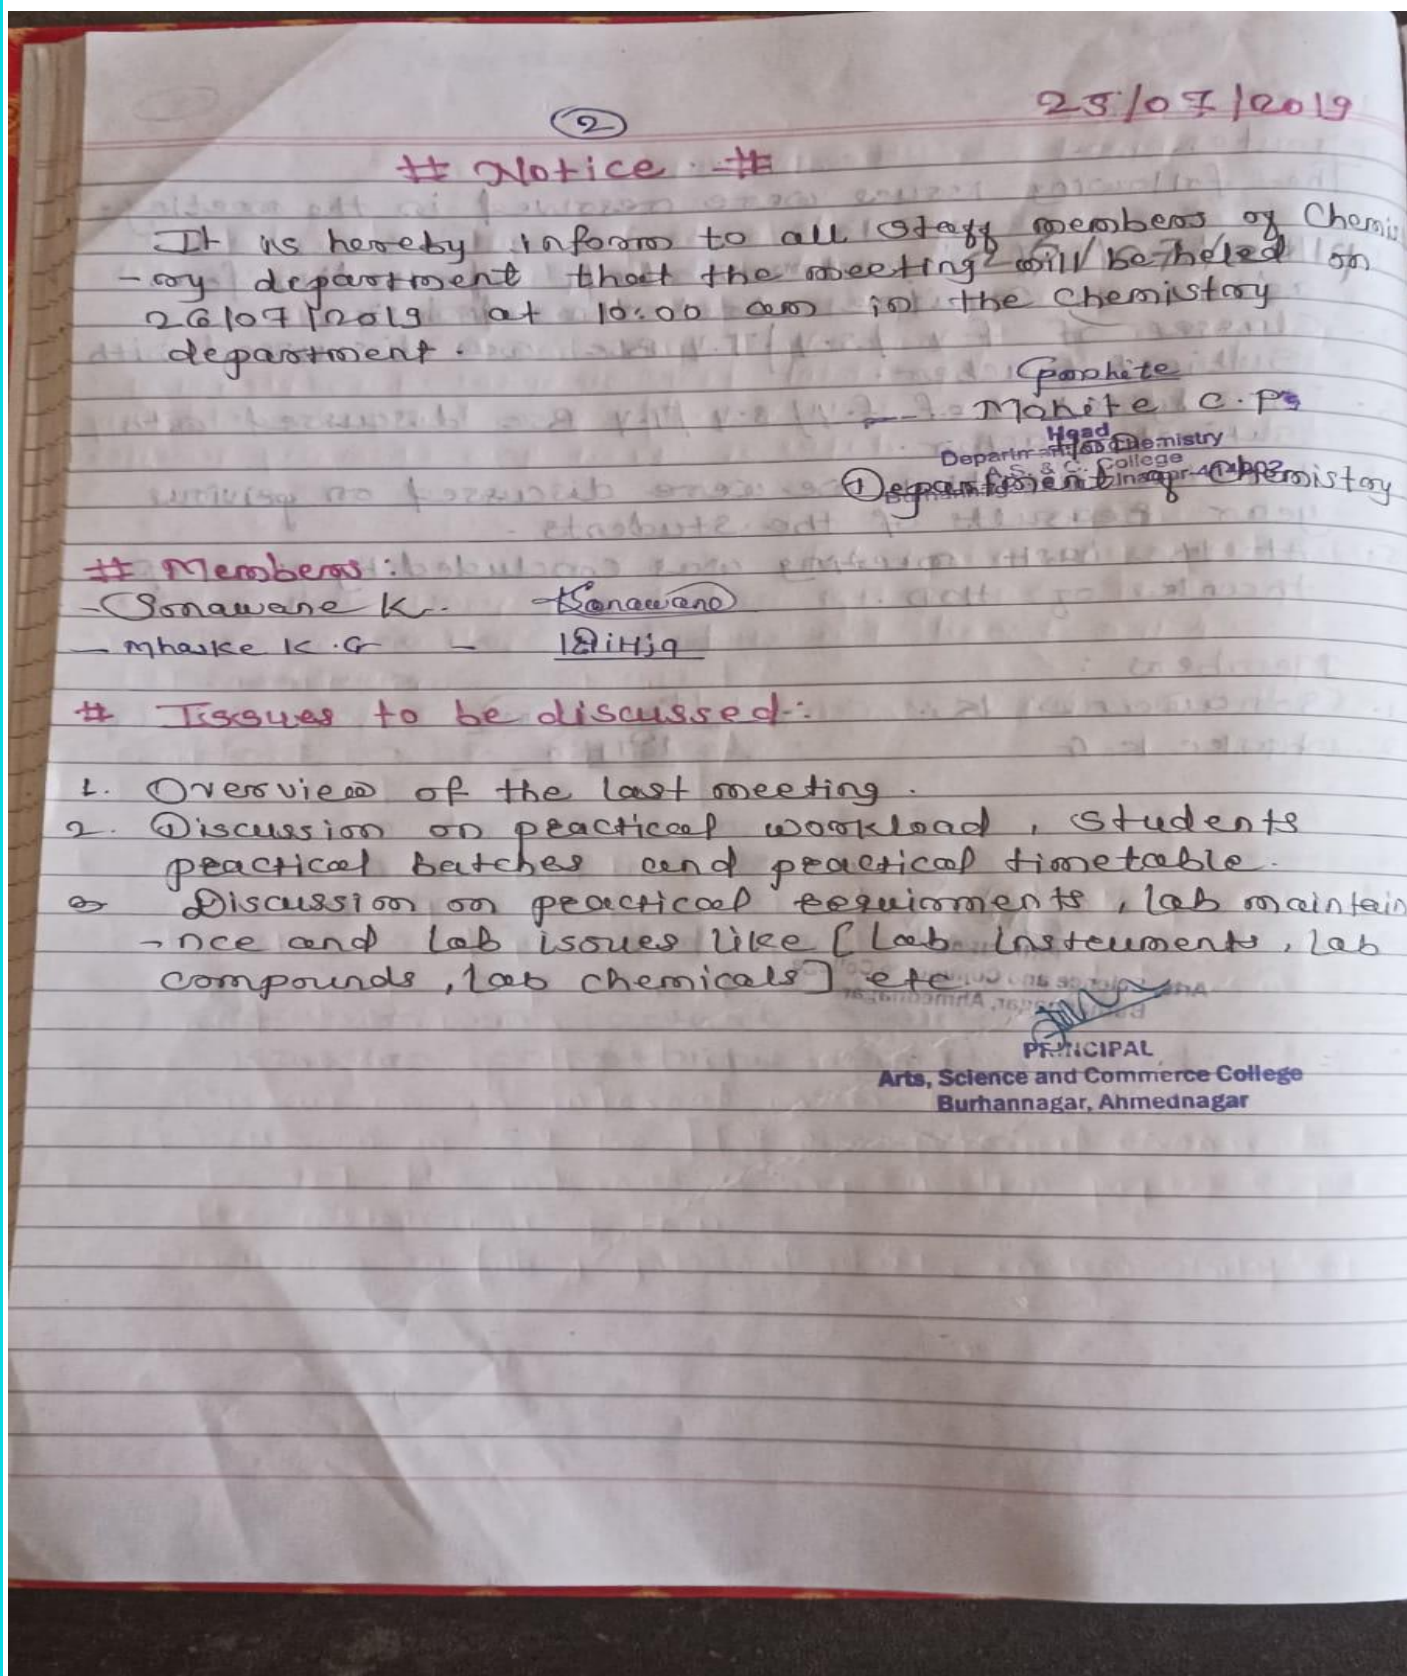 25/07/2019
2
# Notice #
It is hereby inform to all staff members of Chemis
-ry department that the meeting will be heled on
26/07/2019 at 10:00 am in the chemistry
department.
Mohite C.P.
Head
Department of Chemistry
A.S. & C. College
Department of Chemistry
# Members:
- Sonawane K. Sonawane
- Mhaske K.G -
# Issues to be discussed:
1. Overview of the last meeting.
2. Discussion on practical workload, students
practical batches and practical timetable.
3 Discussion on practical requirments, lab maintain
-nce and lab isoues like [Lab instruments, lab
compounds, lab chemicals] etc
PRINCIPAL
Arts, Science and Commerce College
Burhannagar, Ahmednagar